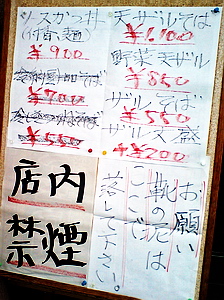 天ザルそば
¥1,100
野菜天ザル
¥850
ザルそば
¥550
ザル大盛
+¥200
ソースかつ丼
(付合麺)
¥900
¥700
¥550
お願い
靴の泥は
ここで
落し下さい。
店内
禁煙